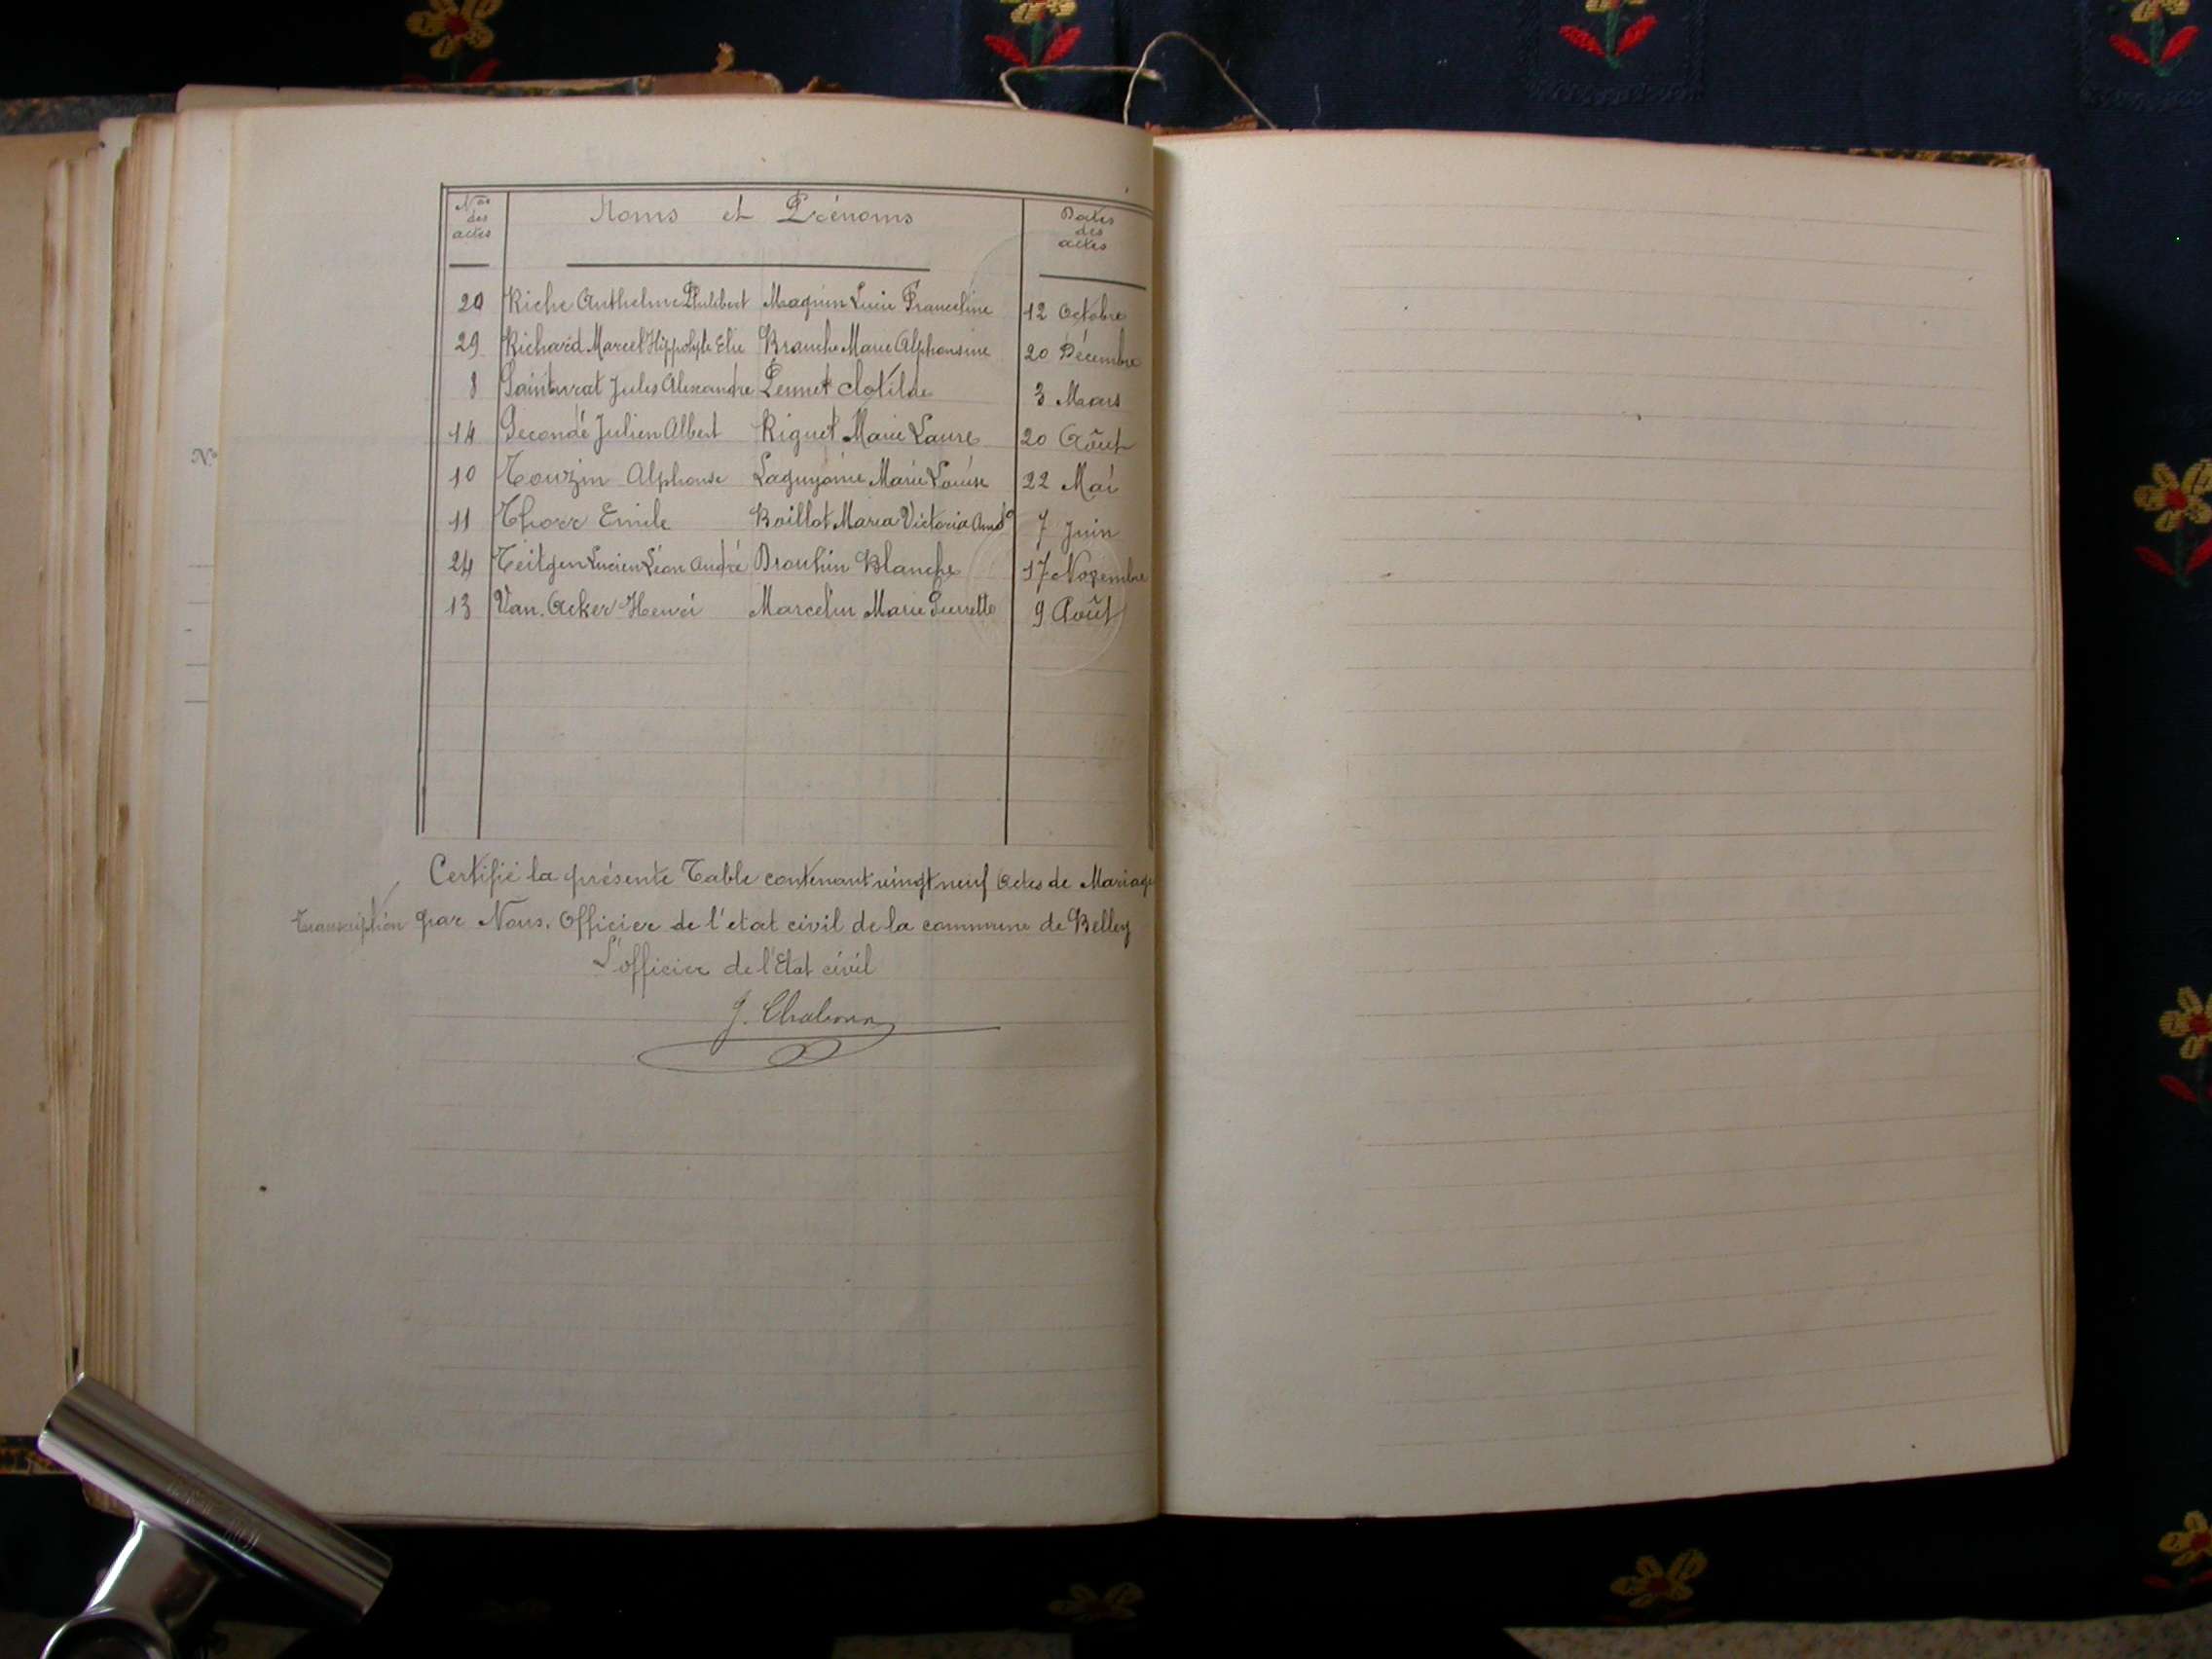 Nos des actes Noms et Prénoms Dates des actes
20 Riche Anthelme Philibert Magnin Lucie Franceline 12 Octobre
29 Richard Marcel Hippolyte Elie Branche Marie Alphonsine 20 Décembre
8 Sainturat Jules Alexandre Pennet Clotilde 3 Mars
14 Secondé Julien Albert Riguet Marie Laure 20 Août
10 Touzin Alphonse Laguyonie Marie Louise 22 Mai
11 Thorr Emile Boillot Maria Victoria 7 Juin
24 Teitgen Lucien Léon André Drouhin Blanche 17 Novembre
13 Van. Acker Henri Marcelin Marie Pierrette 9 Août
N°
Certifié la présente Table contenant vingt neuf Actes de Mariage
Transcription par Nous. Officier de l'etat civil de la commune de Belley
L'officier de l'Etat civil